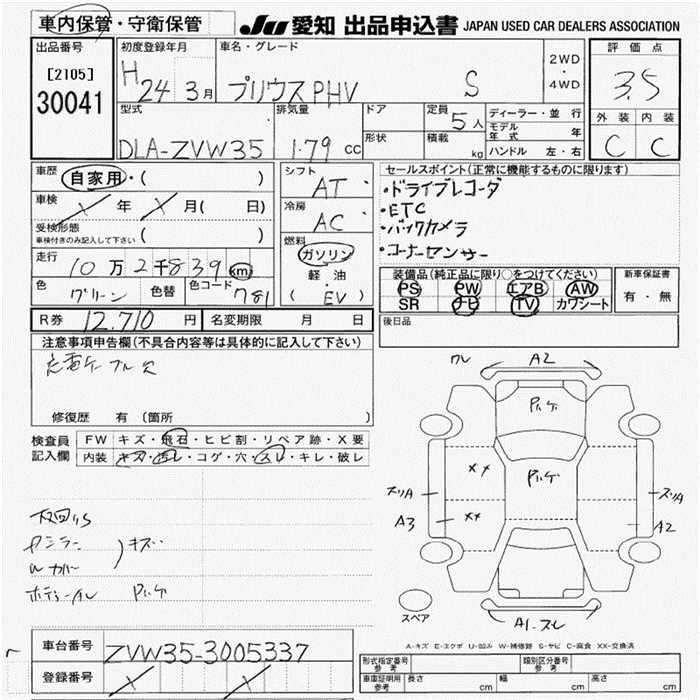 車内保管・守衛保管
JU 愛知 出品申込書 JAPAN USED CAR DEALERS ASSOCIATION
出品番号
[2105]
30041
初度登録年月
H24 3月
車名・グレード
プリウスPHV S
2WD・4WD
評価点
3.5
外装 内装
C C
型式
DLA-ZVW35
排気量
1.79 cc
ドア
形状
定員 5人
積載 kg
ディーラー・並行
モデル年式 年
ハンドル 左・右
車歴 自家用・( )
車検 X 年 X 月( 日)
受検形態
車検付きのみ記入して下さい ( )
走行
10万2千839km
色 グリーン 色替 色コード 781
シフト
AT
冷房
AC
燃料
ガソリン
軽油
(EV)
セールスポイント(正常に機能するものに限ります)
・ドライブレコーダ
・ETC
・バックカメラ
・コーナーセンサー
装備品(純正品に限り○をつけてください)
PS PW エアB AW
SR ナビ TV カワシート
新車保証書
有・無
後日品
R券 12.710 円 名変期限 月 日
注意事項申告欄(不具合内容等は具体的に記入して下さい)
充電ケーブル欠
修復歴 有 (箇所 )
検査員記入欄
FW キズ・飛石・ヒビ割・リペア跡・X要
内装 キズ・汚レ・コゲ・穴・スレ・キレ・破レ
下回りS
キズ
ワレ A2
Pいケ
XX Pいケ
スリA スリA
A3 XX A2
スペア
A1-スレ
A-キズ E-エクボ U-凹み W-補修跡 S-サビ C-腐食 XX-交換済
車台番号 ZVW35-3005337
登録番号 X X
形式指定番号 参考
類別区分番号 参考
車庫証明用 参考 長さ cm 幅 cm 高さ cm